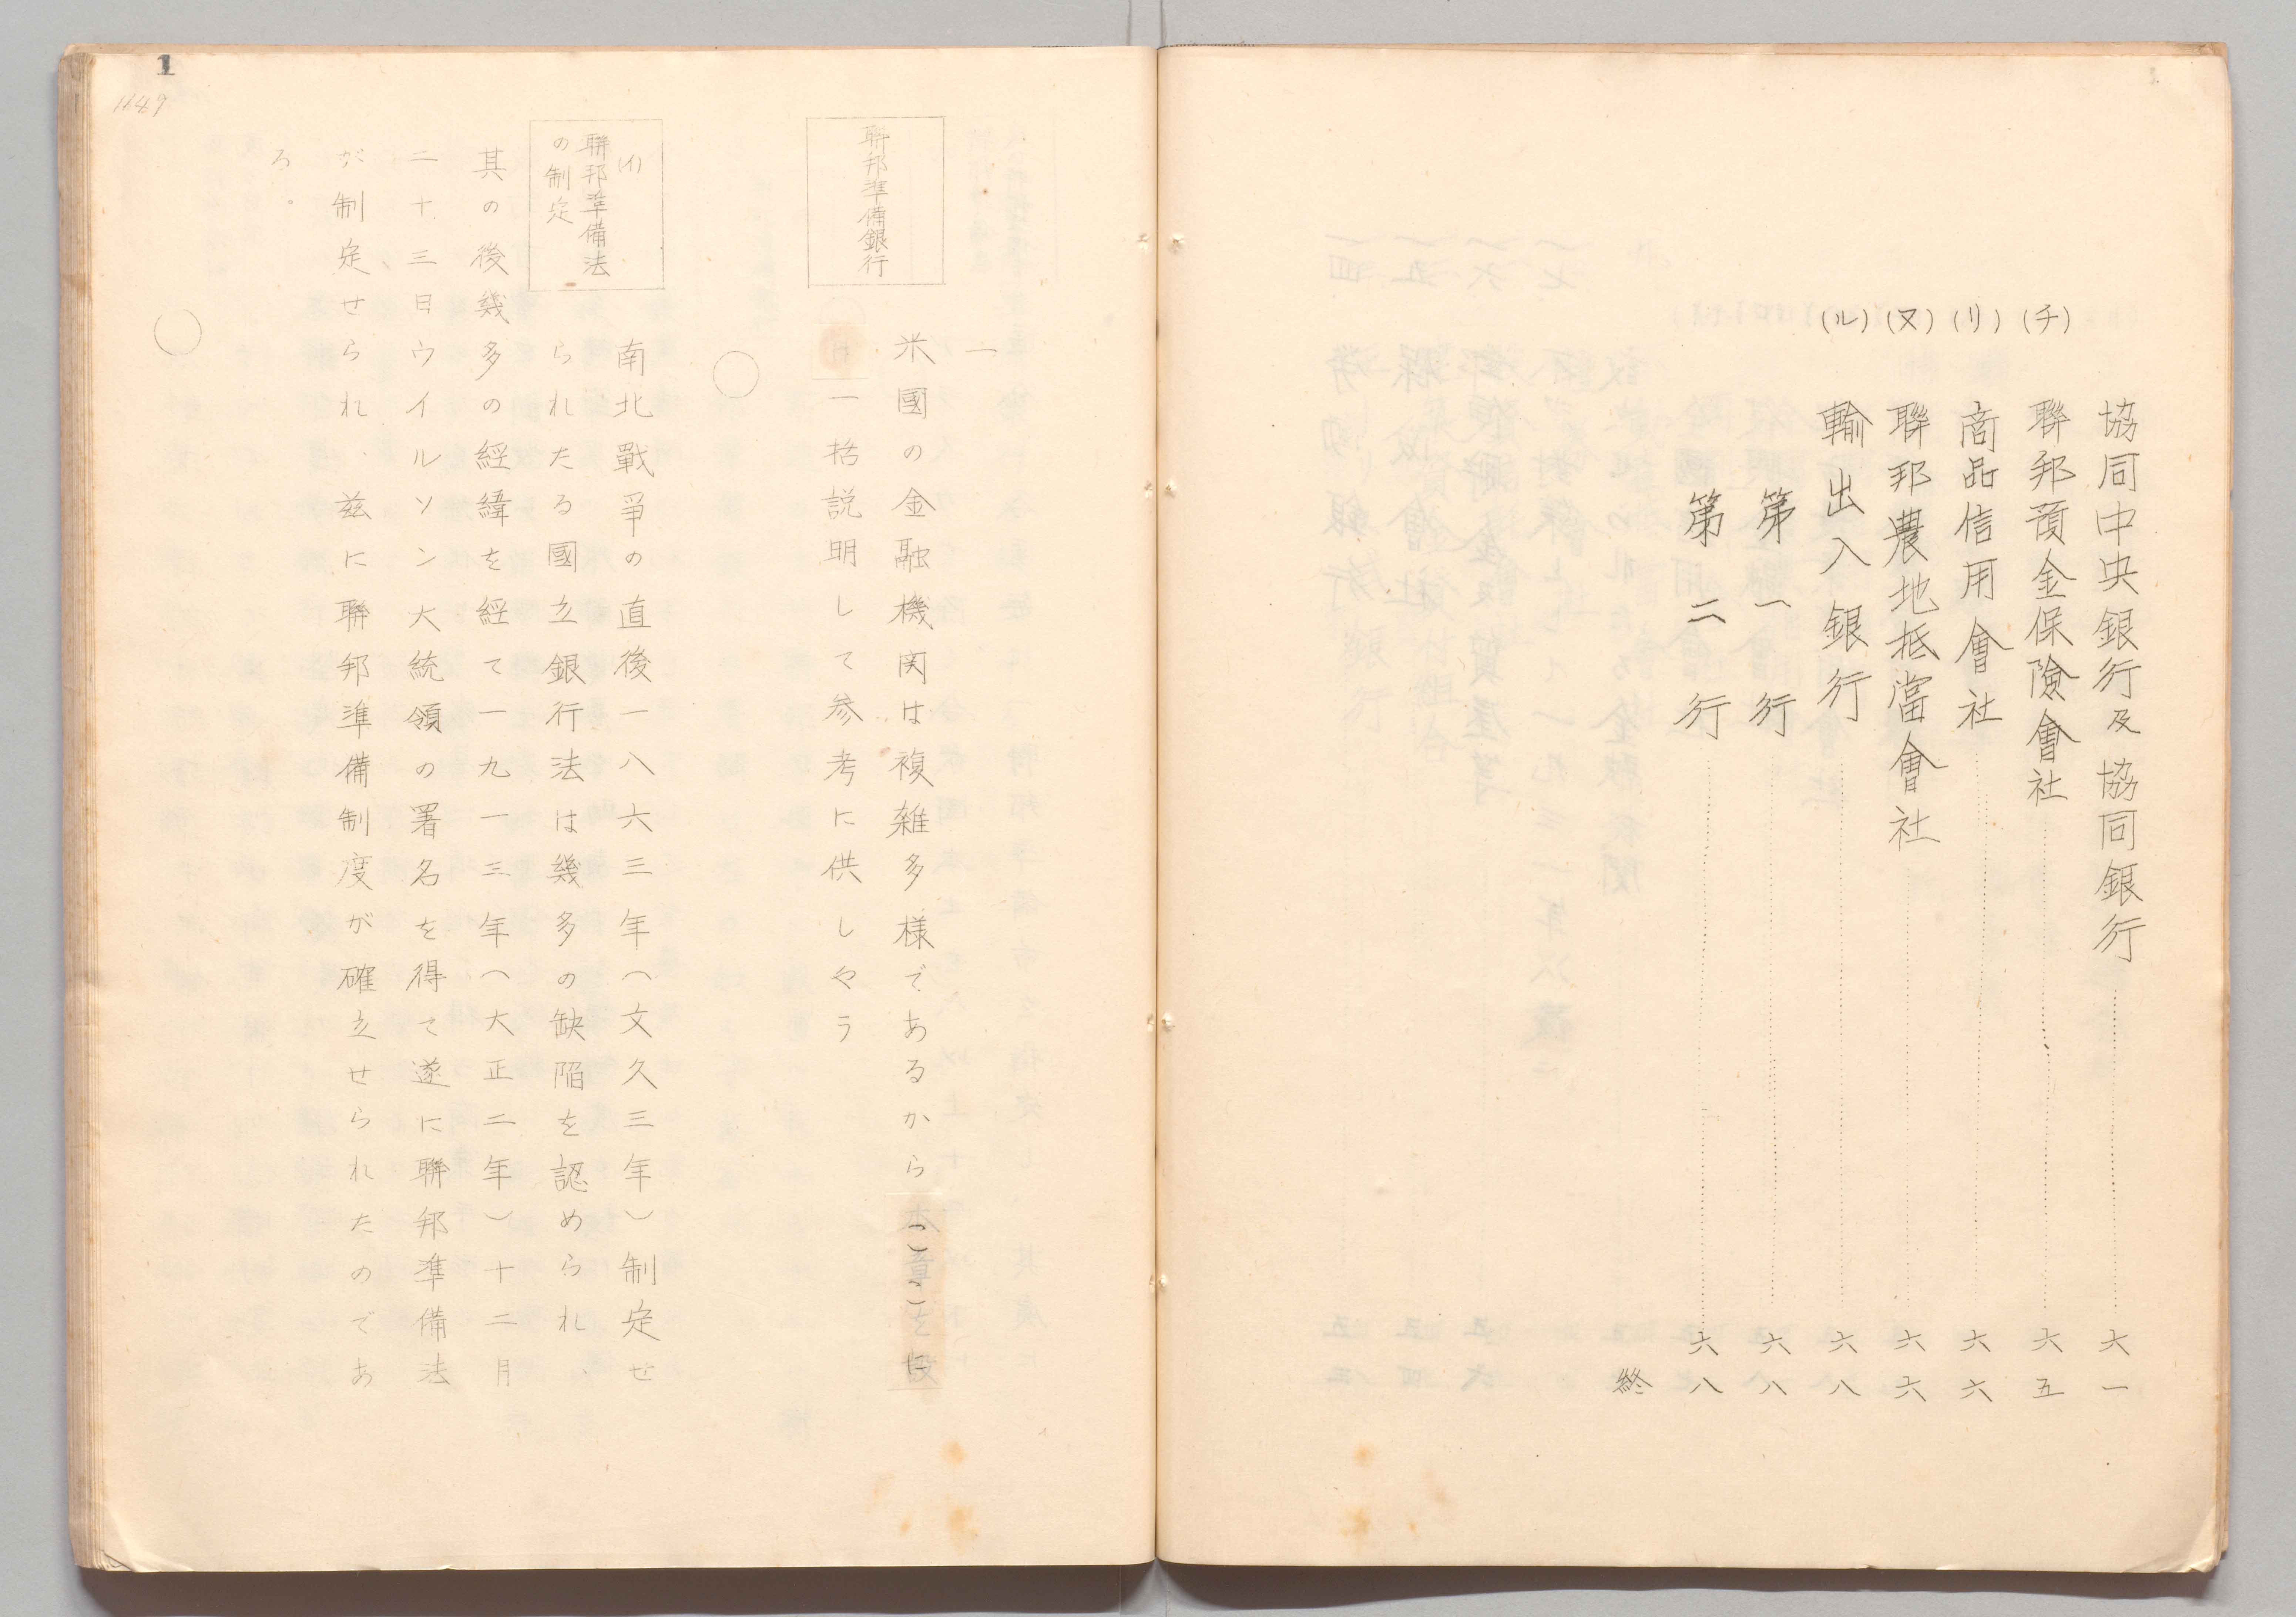 (チ) 協同中央銀行及協同銀行……六一
聯邦預金保險會社……六五
(リ) 商品信用會社……六六
(ヌ) 聯邦農地抵當會社……六六
(ル) 輸出入銀行……六八
第一行……六八
第二行……六八
終
1
1149
一
米國の金融機関は複雑多様であるから、ここに
一括説明して参考に供しやう
聯邦準備銀行
(イ)
聯邦準備法
の制定
南北戰爭の直後一八六三年(文久三年)制定せ
られたる國立銀行法は幾多の缺陥を認められ、
其の後幾多の経緯を経て一九一三年(大正二年)十二月
二十三日ウイルソン大統領の署名を得て遂に聯邦準備法
が制定せられ、茲に聯邦準備制度が確立せられたのであ
る。